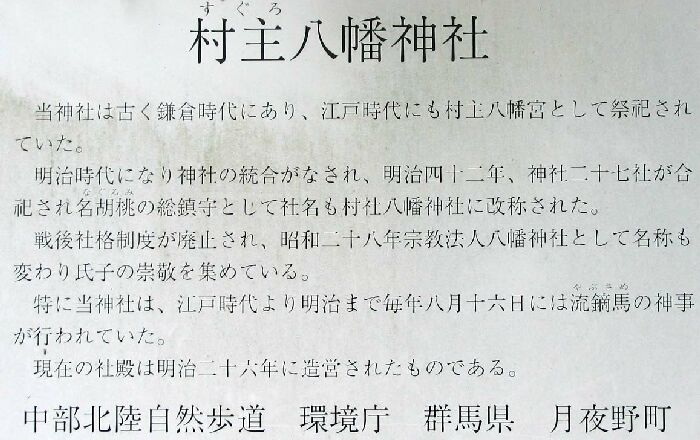 すぐろ
村主八幡神社
当神社は古く鎌倉時代にあり、江戸時代にも村主八幡宮として祭祀され
ていた。
明治時代になり神社の統合がなされ、明治四十二年、神社二十七社が合
なぐるみ
祀され名胡桃の総鎮守として社名も村社八幡神社に改称された。
戦後社格制度が廃止され、昭和二十八年宗教法人八幡神社として名称も
変わり氏子の崇敬を集めている。
やぶさめ
特に当神社は、江戸時代より明治まで毎年八月十六日には流鏑馬の神事
が行われていた。
現在の社殿は明治二十六年に造営されたものである。
中部北陸自然歩道 環境庁 群馬県 月夜野町